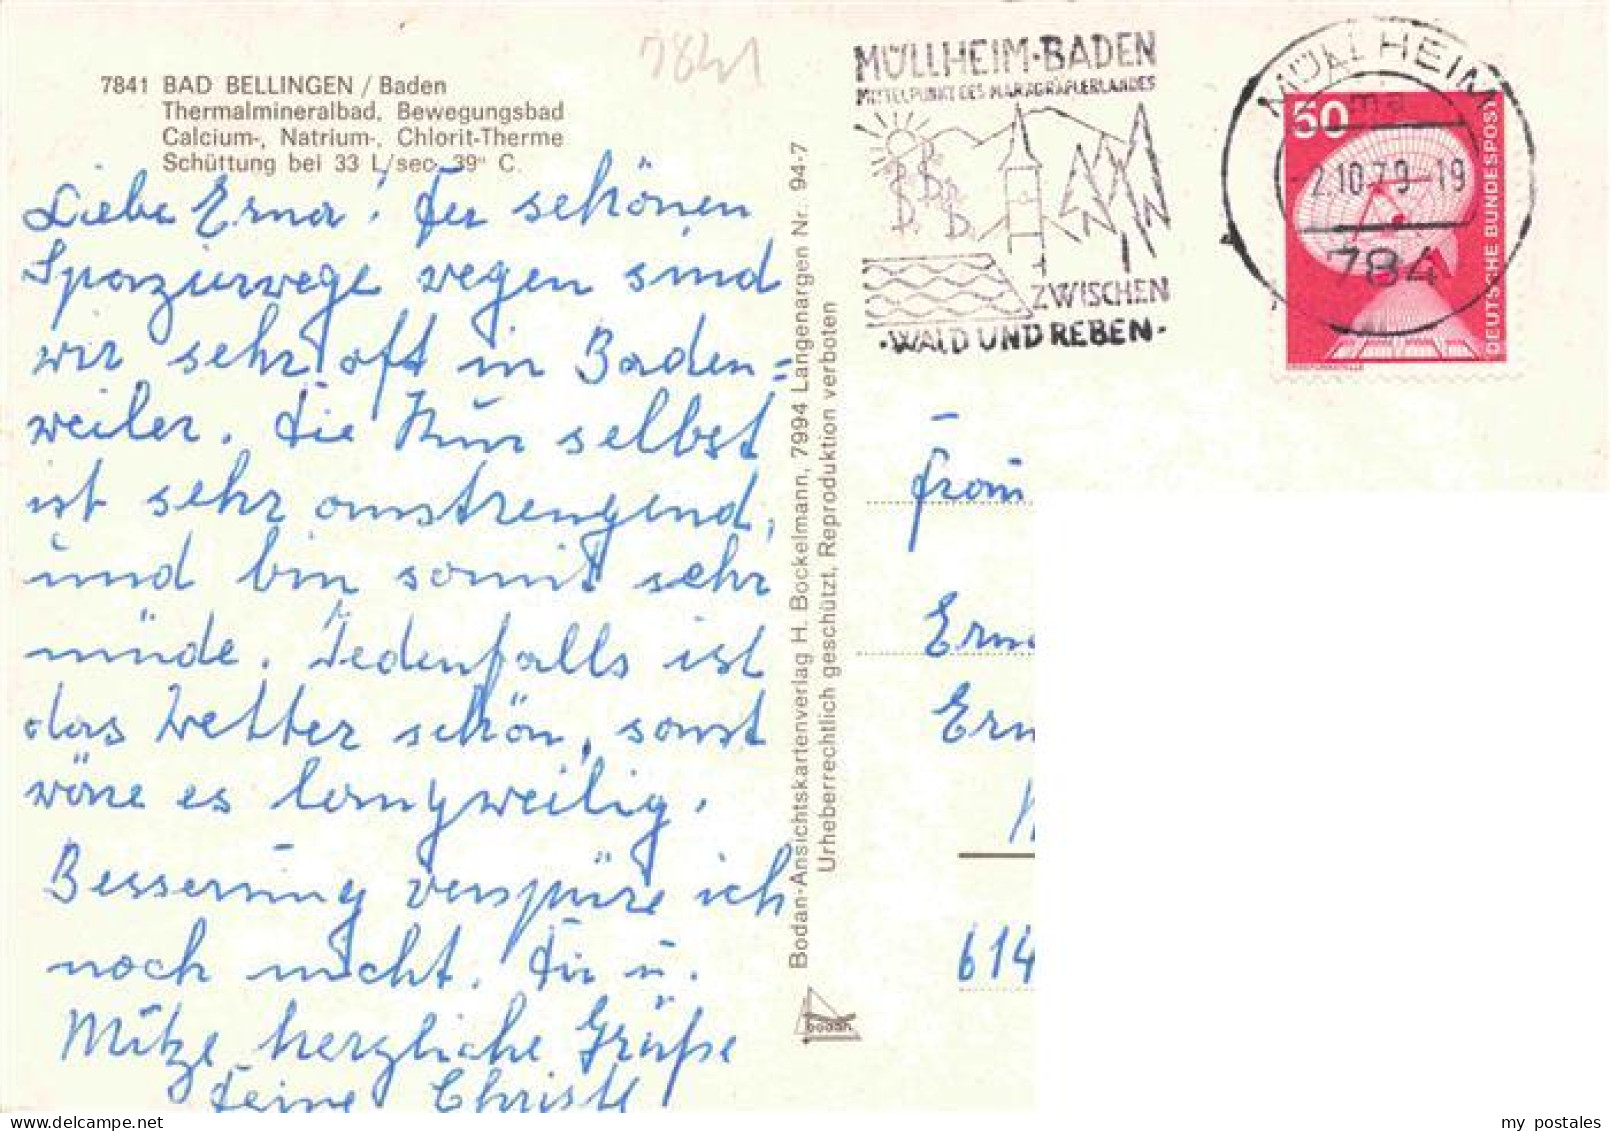 7841
7841 BAD BELLINGEN / Baden
Thermalmineralbad, Bewegungsbad
Calcium-, Natrium-, Chlorit-Therme
Schüttung bei 33 L/sec. 39° C.
Liebe Erna! Der schönen
Spazierwege wegen sind
wir sehr oft in Baden=
weiler. Die Kur selbst
ist sehr anstrengend,
und bin somit sehr
müde. Jedenfalls ist
das Wetter schön, sonst
wäre es langweilig.
Besserung verspüre ich
noch nicht. Dir u.
Mütze herzliche Grüße
Deine Christl
Bodan-Ansichtskartenverlag H. Bockelmann, 7994 Langenargen Nr. 94-7
Urheberrechtlich geschützt, Reproduktion verboten
bodan
MÜLLHEIM·BADEN
MITTELPUNKT DES MARKGRÄFLERLANDES
ZWISCHEN
·WALD UND REBEN·
MÜLLHEIM
ma
-2.10.79-19
784
50
DEUTSCHE BUNDESPOST
Frau
Erna
Ern
614
my postales